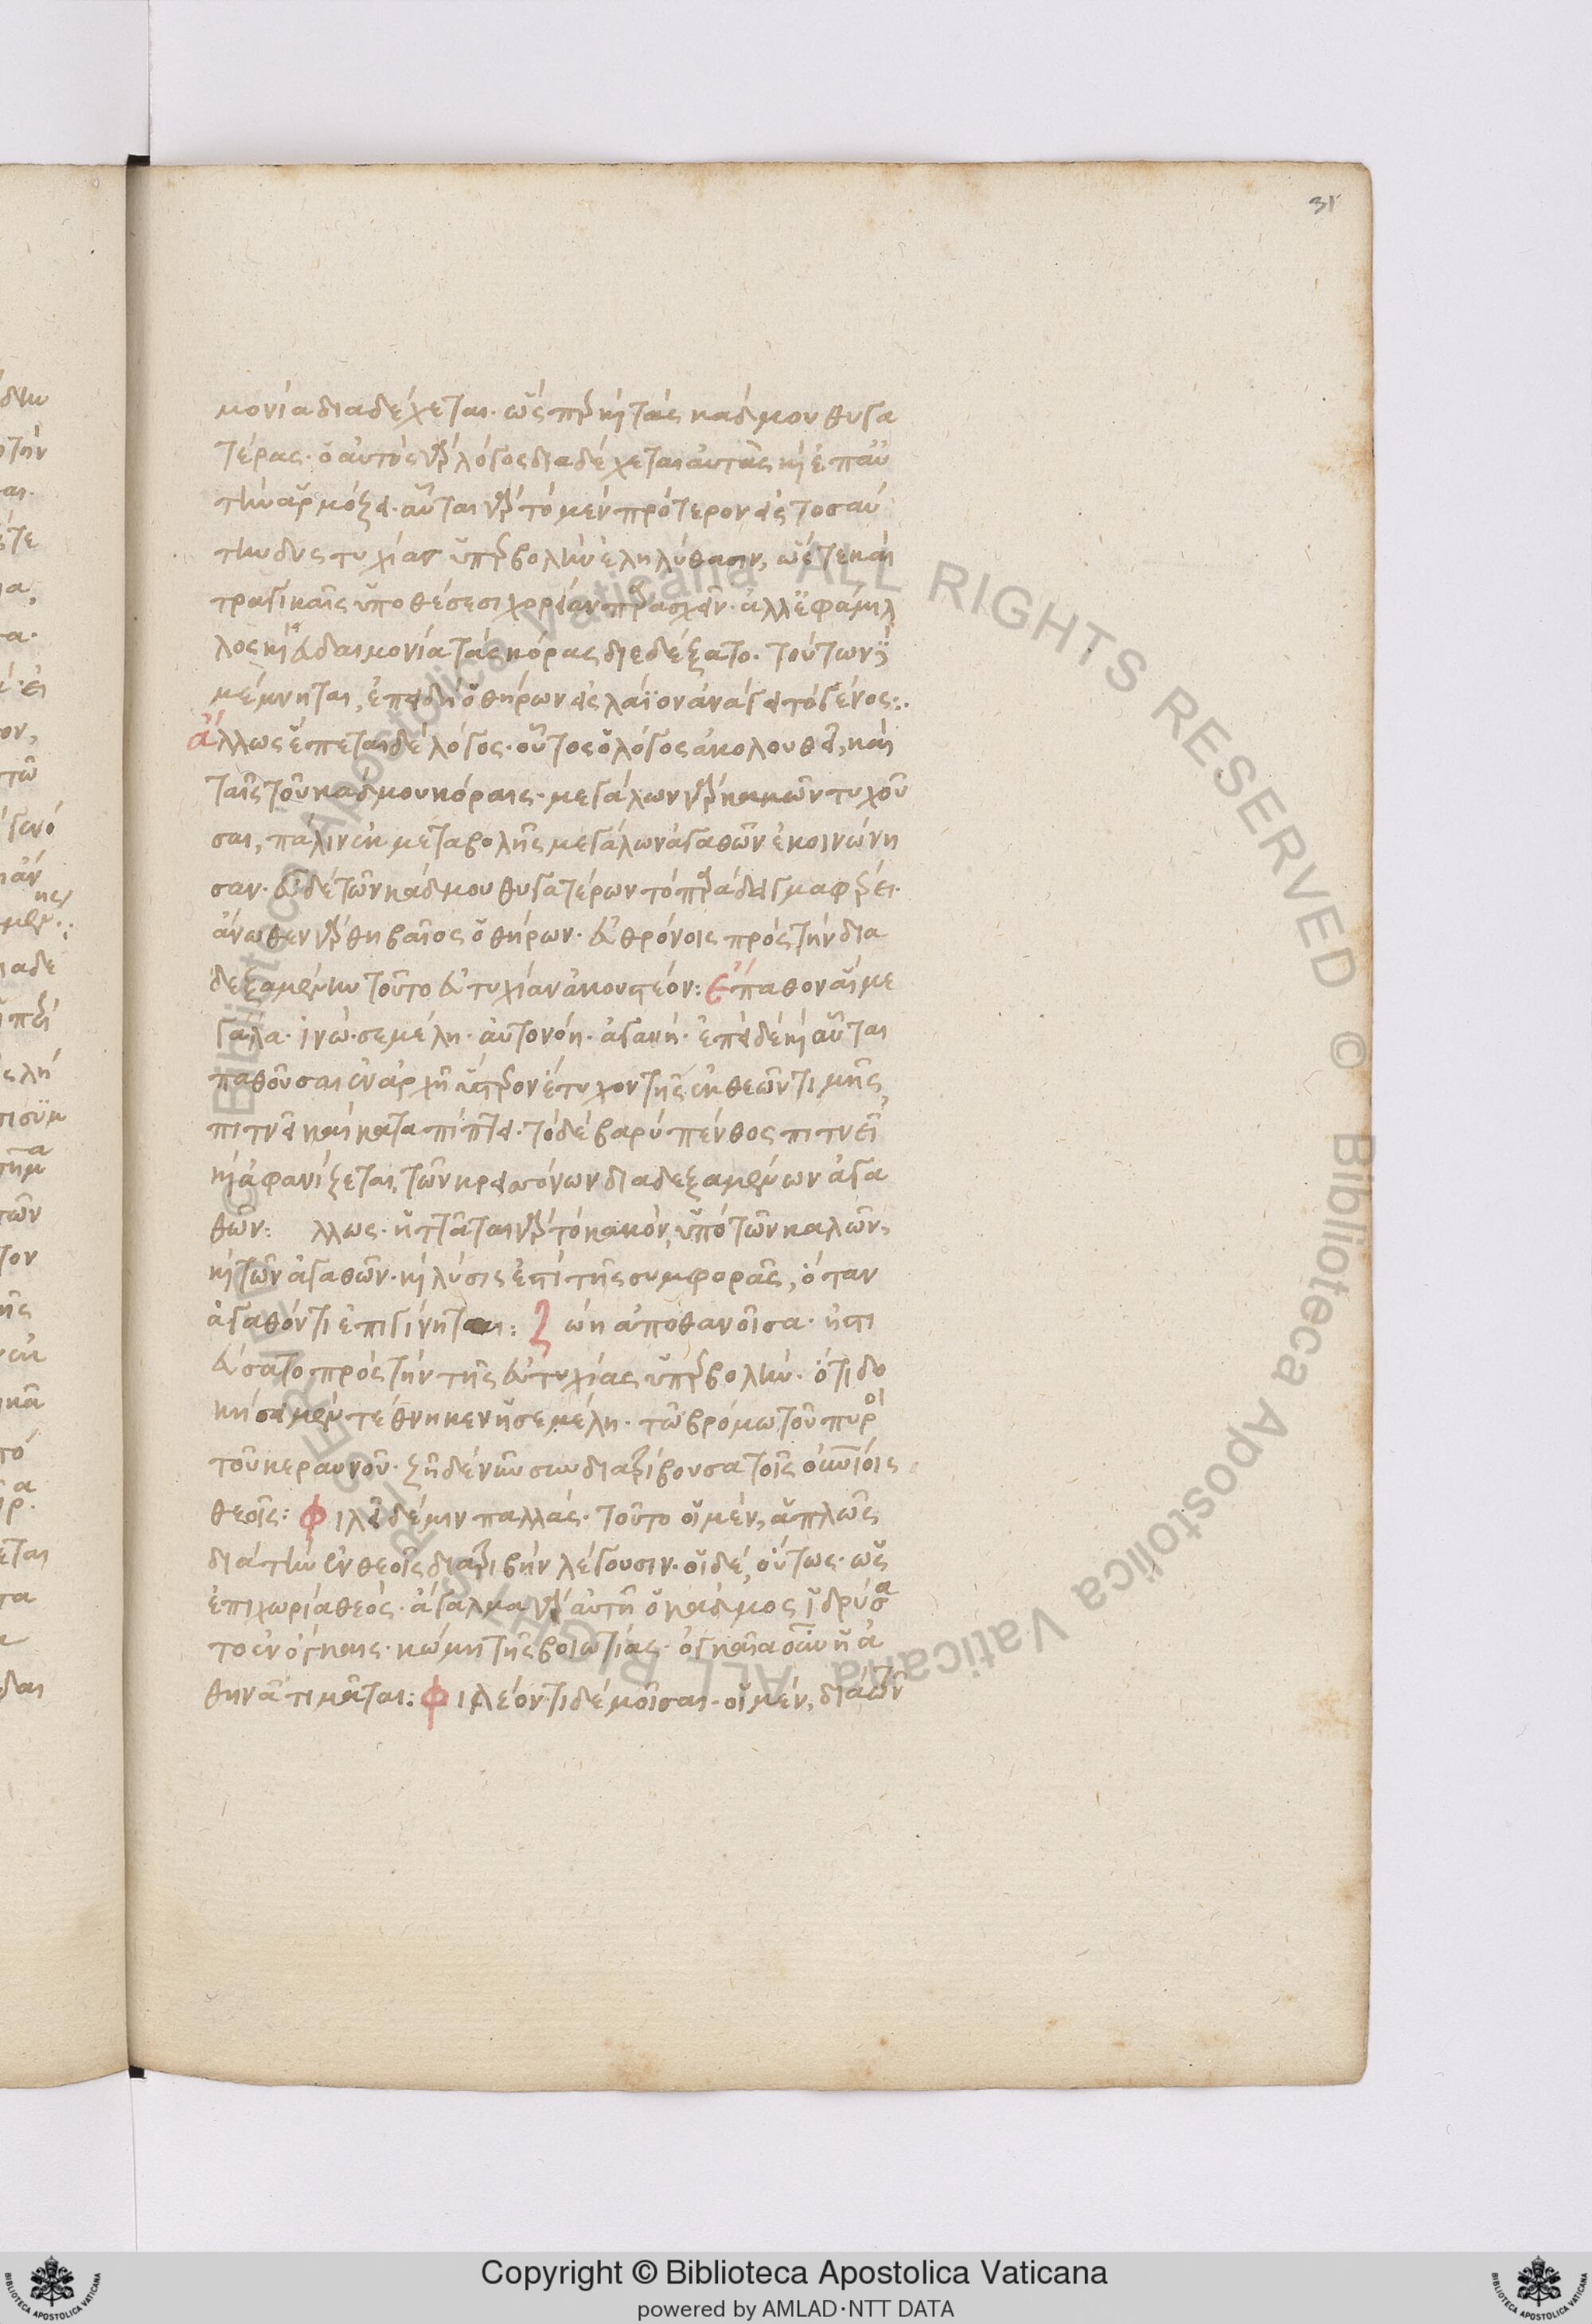 31
μονία διαδέχεται· ὥσπερ καὶ τὰς κάδμου θυγα
τέρας· ὁ αὐτὸς γὰρ λόγος διαδέχεται αὐτὰς καὶ ἐπ' αὐ
τὴν ἁρμόξει· αὗται γὰρ τὸ μὲν πρότερον εἰς τοσαύ
την δυςτυχίας ὑπερβολὴν ἐληλύθασιν, ὥστε καὶ
τραγικαῖς ὑποθέσεσι χορείαν παρασχεῖν· ἀλλ' ἐφάμιλ
λος καὶ ἡ εὐδαιμονία τὰς κόρας διεδέξατο· τούτων δὲ
μέμνηται, ἐπειδὴ ὁ θήρων εἰς λάϊον ἀνάγει τὸ γένος:·
ἄλλως ἕπεται δὲ λόγος· οὗτος ὁ λόγος ἀκολουθεῖ, καὶ
ταῖς τοῦ κάδμου κόραις· μεγάλων γὰρ κακῶν τυχοῦ
σαι, πάλιν ἐκ μεταβολῆς μεγάλων ἀγαθῶν ἐκοινώνη
σαν· εὖ δὲ τῶν κάδμου θυγατέρων τὸ παράδειγμα φέρει·
ἄνωθεν γὰρ θηβαῖος ὁ θήρων· εὐθρόνοις πρὸς τὴν δια
δεξαμένην τοῦτο εὐτυχίαν ἀκουστέον: ἔπαθον αἳ με
γάλα· ἰνώ· σεμέλη· αὐτονόη· ἀγαυή· ἐπεὶ δὲ καὶ αὗται
παθοῦσαι ἐν ἀρχῇ ὕστερον ἔτυχον τῆς ἐκ θεῶν τιμῆς,
πιτνεῖ καὶ καταπίπτει· τὸ δὲ βαρὺ πένθος πιτνεῖ
καὶ ἀφανίζεται, τῶν κρεισσόνων διαδεξαμένων ἀγα
θῶν: λλως· ἡττᾶται γὰρ τὸ κακὸν, ὑπὸ τῶν καλῶν,
καὶ τῶν ἀγαθῶν· καὶ λύσις ἐστὶ τῆς συμφορᾶς, ὅταν
ἀγαθόν τι ἐπιγίνηται: ζώη ἀποθανοῖσα· ἠστι
εύσατο πρὸς τὴν τῆς εὐτυχίας ὑπερβολήν· ὅτι δο
κήσει μὲν τέθνηκεν ἡ σεμέλη· τῷ βρόμῳ τοῦ πυρὸς
τοῦ κεραυνοῦ· ζῇ δὲ νῦν συνδιατρίβουσα τοῖς οὐρανίοις
θεοῖς: φιλεῖ δέ μιν παλλάς· τοῦτο οἱ μὲν, ἁπλῶς
διὰ τὴν ἐν θεοῖς διατριβὴν λέγουσιν· οἱ δὲ, οὕτως· ὡς
ἐπιχωρία θεός· ἄγαλμα γὰρ αὐτῆ ὁ κάδμος ἱδρύσα
το ἐν ὄγκαις· κώμη τῆς βοιωτίας· ὀγκαία οὖν ἡ ἀ
θηνᾶ τιμᾶται: φιλέοντι δὲ μοῖσαι· οἱ μὲν, διὰ τῶν
Copyright © Biblioteca Apostolica Vaticana
powered by AMLAD·NTT DATA